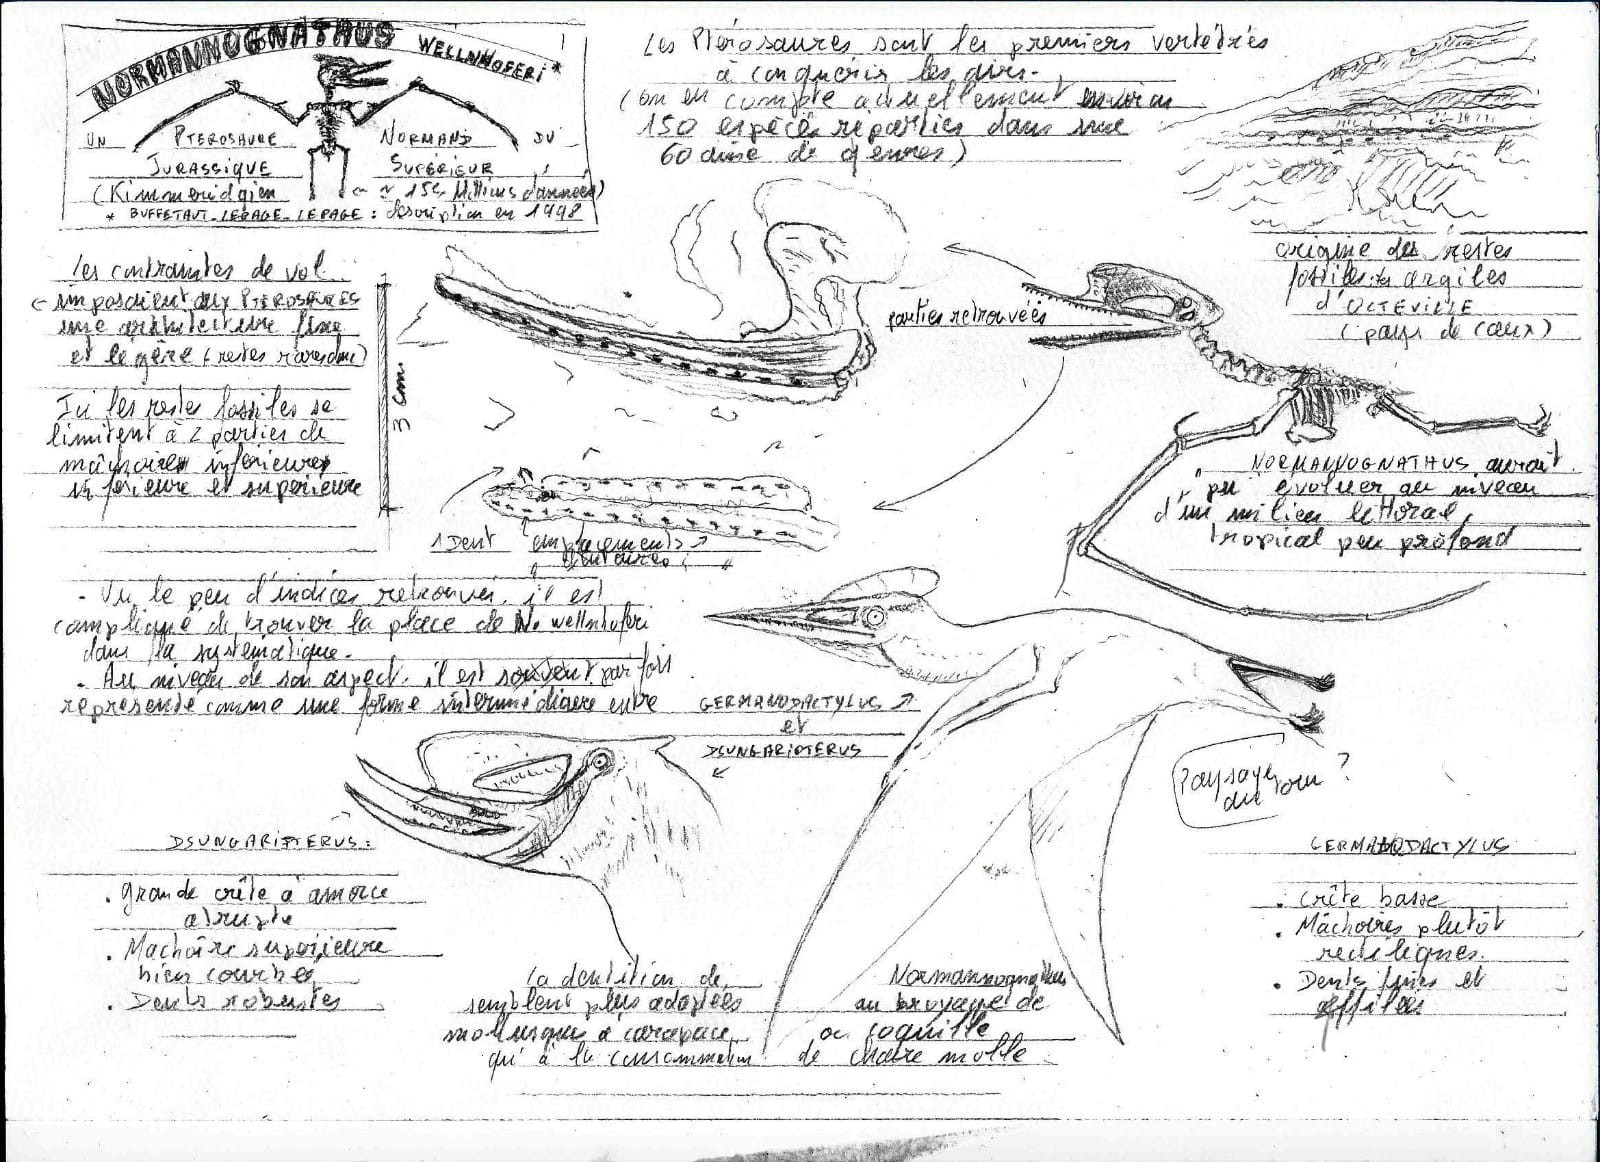 NORMANNOGNATHUS WELLNHOFERI *
UN PTEROSAURE NORMAND DU
JURASSIQUE SUPÉRIEUR
(Kimmeridgien ~ 155 Millions d'années)
* BUFFETAUT-LEPAGE-LEPAGE : description en 1998
Les Ptérosaures sont les premiers vertébrés
à conquérir les airs.
(on en compte actuellement environ
150 espèces réparties dans une
60aine de genres)
origine des restes
fossiles : argiles
d'OCTEVILLE
(pays de Caux)
Les contraintes de vol
imposaient aux PTEROSAURES
une architecture fine
et légère (restes rares donc)
Ici les restes fossiles se
limitent à 2 parties de
mâchoires inférieures
inférieure et supérieure
3 cm
parties retrouvées
1 Dent
emplacements
dentaires
NORMANNOGNATHUS aurait
pu évoluer au niveau
d'un milieu littoral,
tropical peu profond
- Vu le peu d'indices retrouvés, il est
compliqué de trouver la place de N. wellnhoferi
dans la systématique.
- Au niveau de son aspect, il est souvent parfois
représenté comme une forme intermédiaire entre
GERMANODACTYLUS
et
DSUNGARIPTERUS
Paysage
du jour ?
DSUNGARIPTERUS :
. Grande crête à amorce
abrupte
. Machoîre supérieure
bien courbée
. Dents robustes
GERMANODACTYLUS
. Crête basse
. Mâchoires plutôt
rectilignes.
. Dents fines et
effilées
La dentition de Normannognathus
semblent plus adaptées au broyage de
mollusques à carapace ou coquille
qu'à la consommation de chaire molle